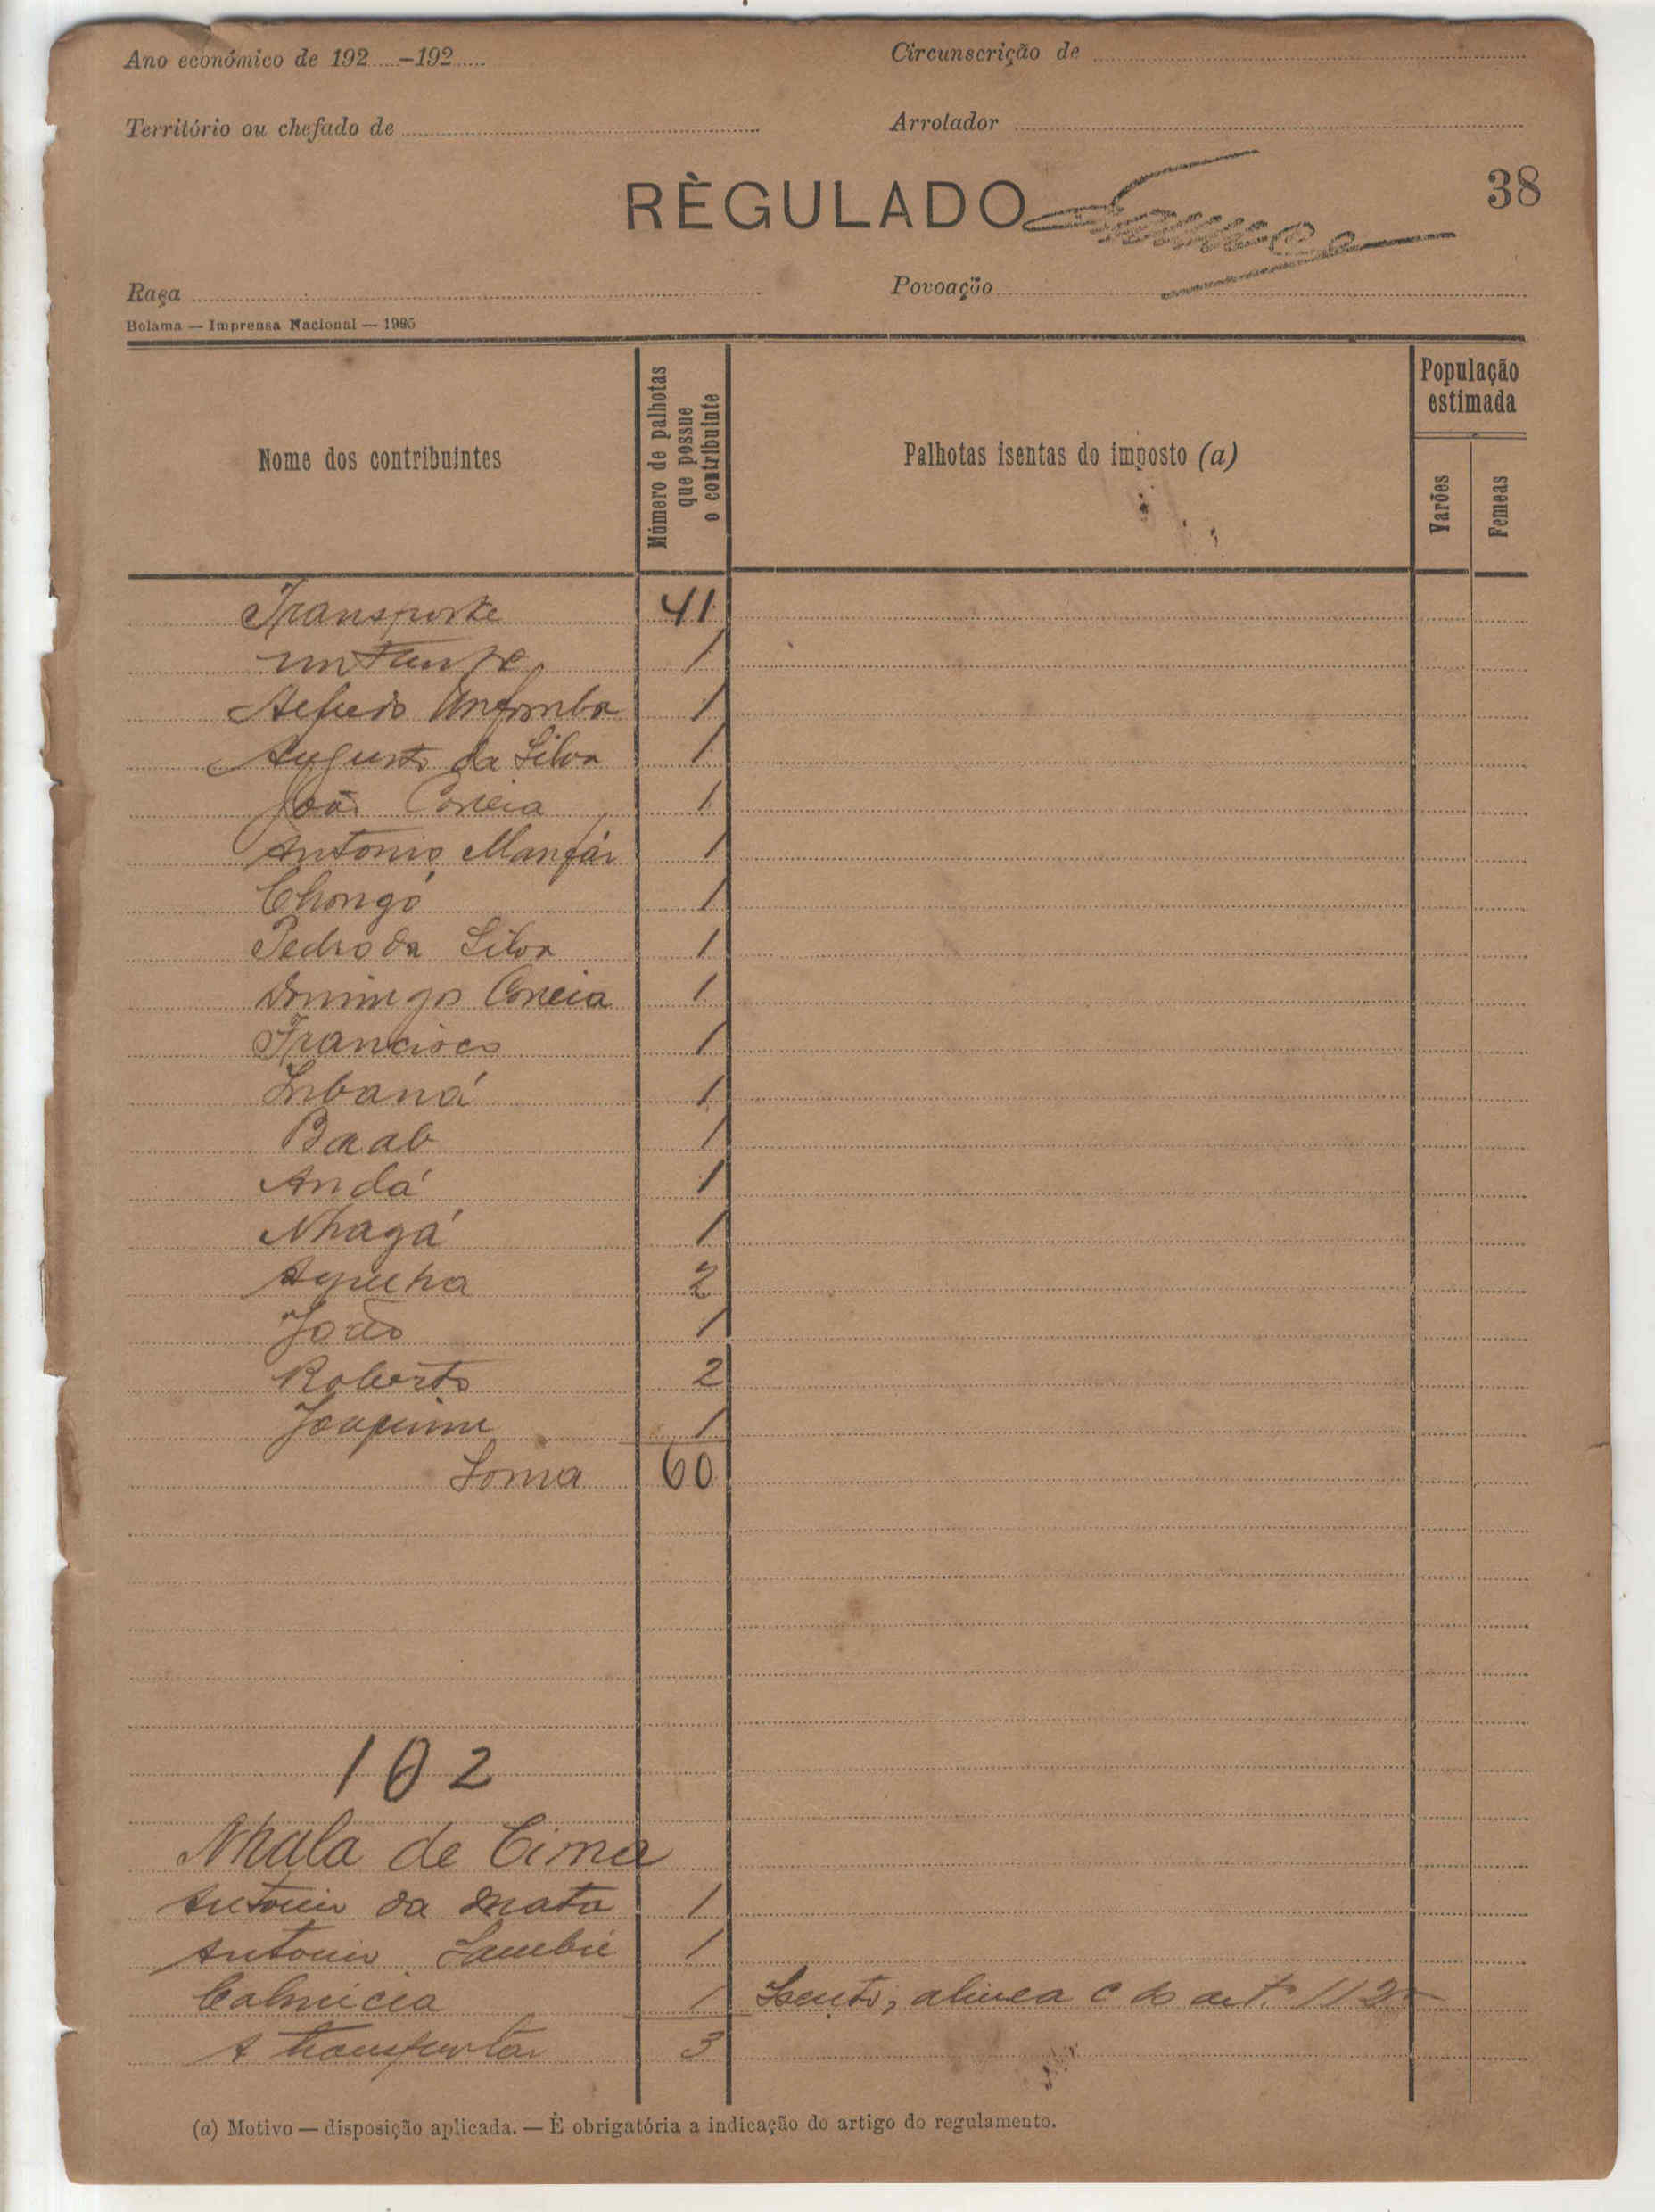 Ano económico de 192.....-192.....
Circunscrição de
Território ou chefado de
Arrolador
RÈGULADO
38
Raça
Povoação
Bolama — Imprensa Nacional — 1925
Nome dos contribuintes
Número de palhotas que possue o contribuinte
Palhotas isentas do imposto (a)
População estimada
Varões
Femeas
Transporte 41
1
Alfredo 1
Augusto da Silva 1
João Correia 1
Antonio 1
Chongó 1
Pedro da Silva 1
Domingos Correia 1
Francisco 1
1
Baab 1
Andá 1
Nhagá 1
2
João 1
Roberto 2
Joaquim 1
Soma 60
102
Nhala de Cima
Antonio da Mata 1
Antonio 1
1 Isento, alinea c do art.º 112
A transportar 3
(a) Motivo — disposição aplicada. — È obrigatória a indicação do artigo do regulamento.